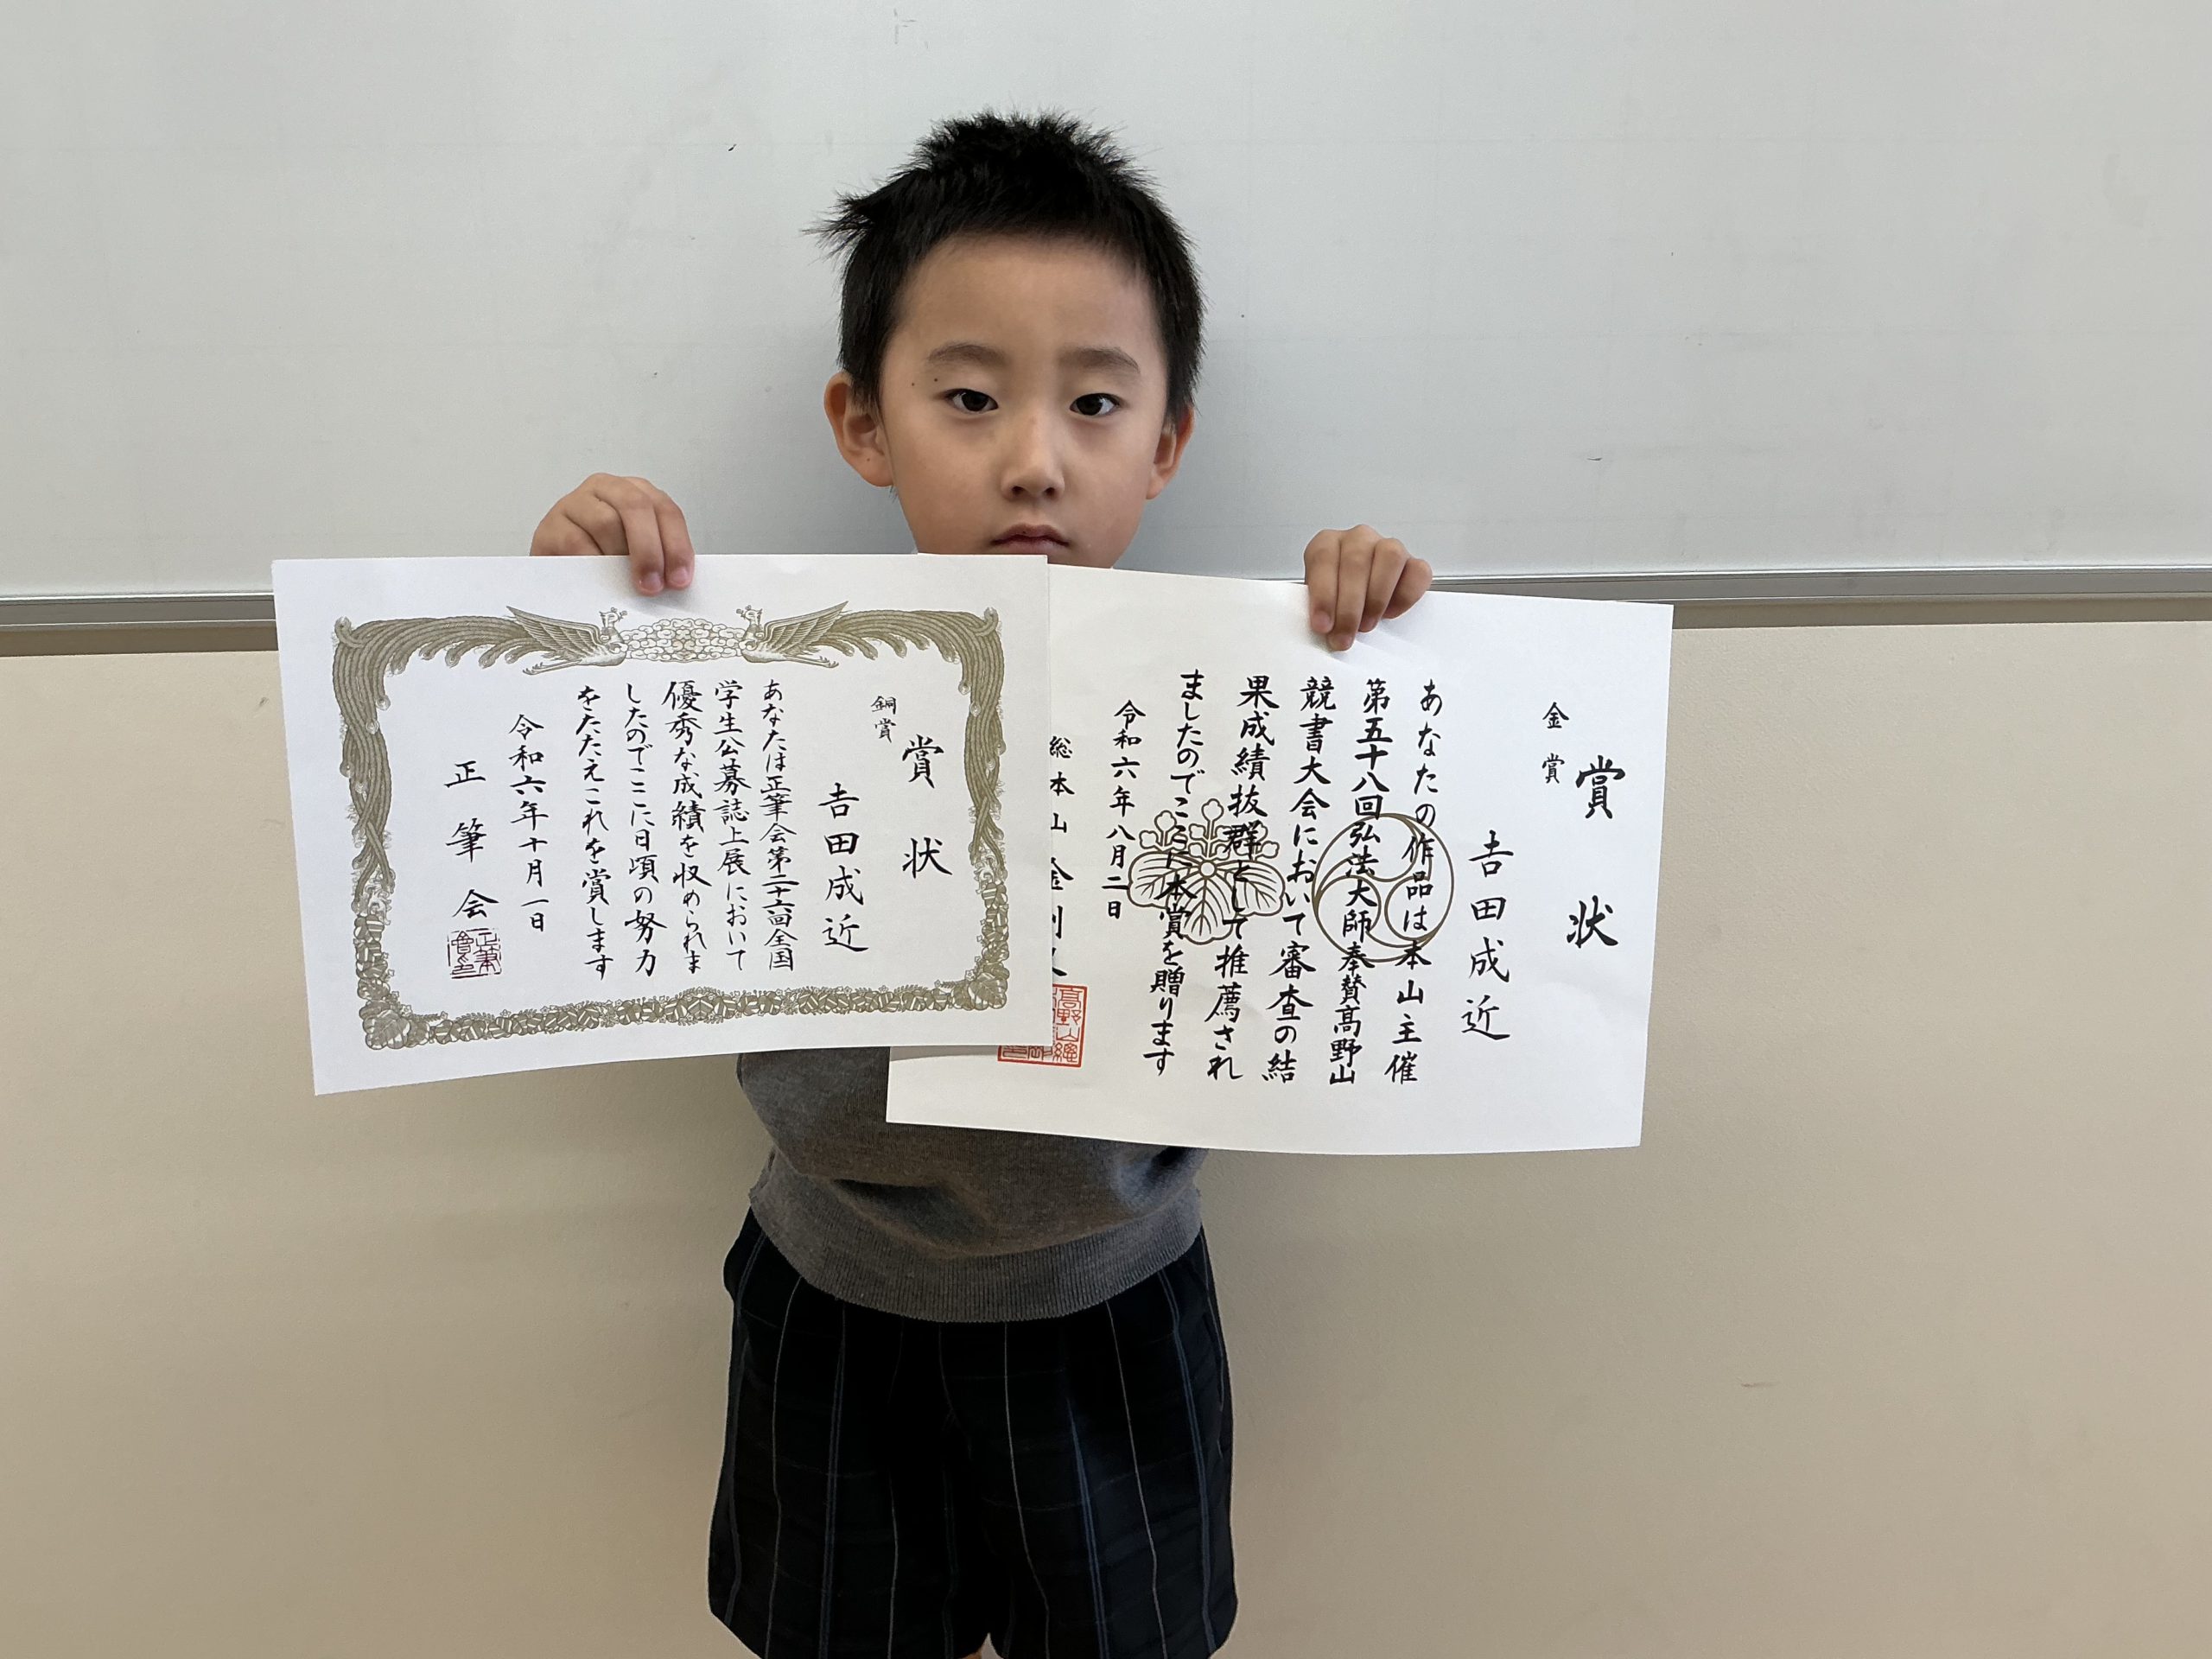 賞状
銅賞
𠮷田成近
あなたは正筆会第二十六回全国
学生公募誌上展において
優秀な成績を収められま
したのでここに日頃の努力
をたたえこれを賞します
令和六年十月一日
正筆会
賞状
金賞
𠮷田成近
あなたの作品は本山主催
第五十八回弘法大師奉賛高野山
競書大会において審査の結
果成績抜群として推薦され
ましたのでここに本賞を贈ります
令和六年八月二日
総本山金剛